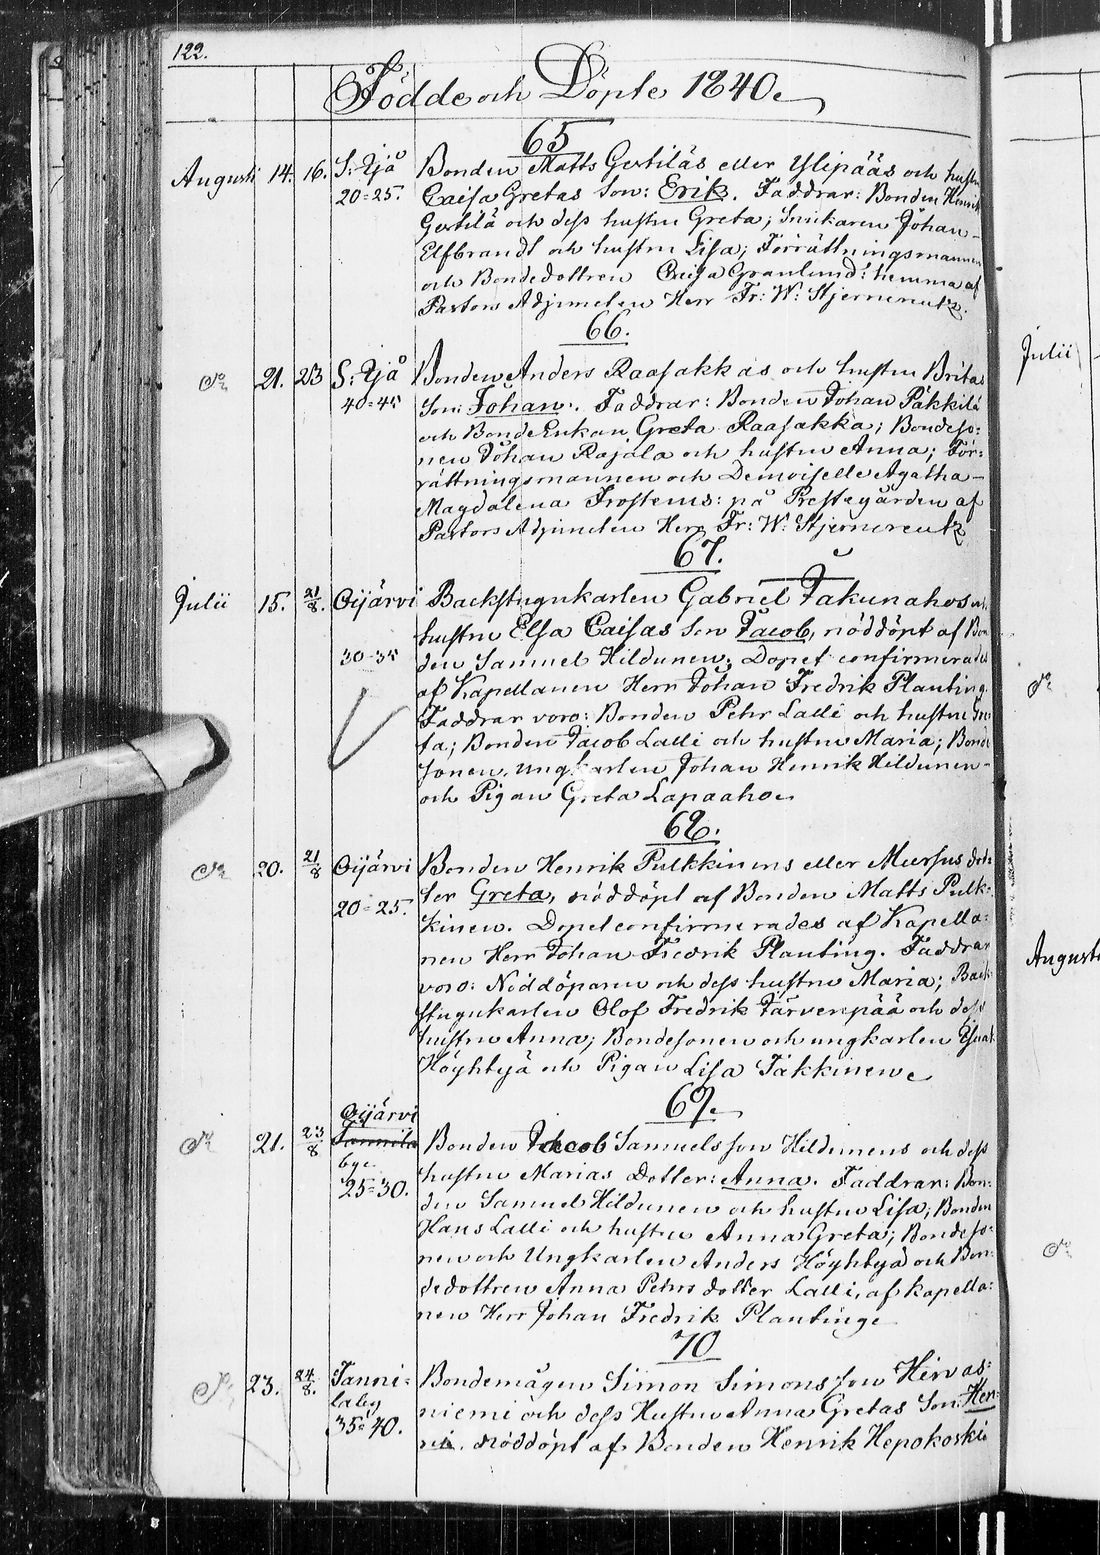 122.
Födde och Döpte 1840.
65
Augusti 14. 16. S: Ijå Bonden Matts Gertiläs eller Ylipääs och hustru
20=25. Caisa Gretas Son: Erik. Faddrar: Bonden Henrik
Gertilä och dess hustru Greta; Snickaren Johan
Elfbrandt och hustru Lisa; Förrättningsmannen
och Bondedottren Caisa Granlund: hemma af
Pastors Adjuncten Herr Fr: W: Stjerncreutz.
66.
21. 23 S: Ijå Bonden Anders Raasakkas och hustru Britas
40=45 Son: Johan. Faddrar: Bonden Johan Päkkilä
och Bonde Enkan Greta Raasakka; Bondeso=
nen Johan Rajala och hustru Anna; För=
rättningsmannen och Demoiselle Agatha
Magdalena Frosterus: på Prestegården af
Pastors Adjuncten Herr Fr: W: Stjerncreutz
67.
Julii 15. 21/8. Oijärvi Backstugukarlen Gabriel Jakunahos och
hustru Elsa Caisas Son Jacob, nöddöpt af Bon
30=35 den Samuel Hildunen; Dopet confirmerades
af Kapellanen Herr Johan Fredrik Planting.
Faddrar voro: Bonden Pehr Lalli och hustru Gre
ta; Bonden Jacob Lalli och hustru Maria; Bonde
sonen, ungkarlen Johan Henrik Hildunen
och Pigan Greta Lapaaho.
68.
20. 21/8 Oijärvi Bonden Henrik Pulkkinens eller Mursus dot=
20=25. ter Greta, nöddöpt af Bonden Matts Pulk=
kinen. Dopet confirmerades af Kapella=
nen Herr Johan Fredrik Planting. Faddrar
voro: Nöddöparen och dess hustru Maria; Back
stugukarlen Olof Fredrik Järvenpää och dess
hustru Anna; Bondesonen och ungkarlen Esaias
Höyhtyä och Pigan Lisa Jäkkinen
69.
Oijärvi
21. 23/8 Tannila Bonden Jacob Samuelsson Hildunens och dess
bye hustru Marias Dotter: Anna. Faddrar: Bon=
25=30. den Samuel Hildunen och hustru Lisa; Bonden
Hans Lalli och hustru Anna Greta; Bondeso=
nen och Ungkarlen Anders Höyhtyä och Bon=
dedottren Anna Pehrs dotter Lalli, af Kapella=
nen Herr Johan Fredrik Planting
70
23. 24/8. Tanni= Bondemågen Simon Simonsson Hirvas=
laby niemi och dess Hustru Anna Gretas Son: Hen=
35=40. rik, nöddöpt af Bonden Henrik Hepokoski
Julii
Augusti